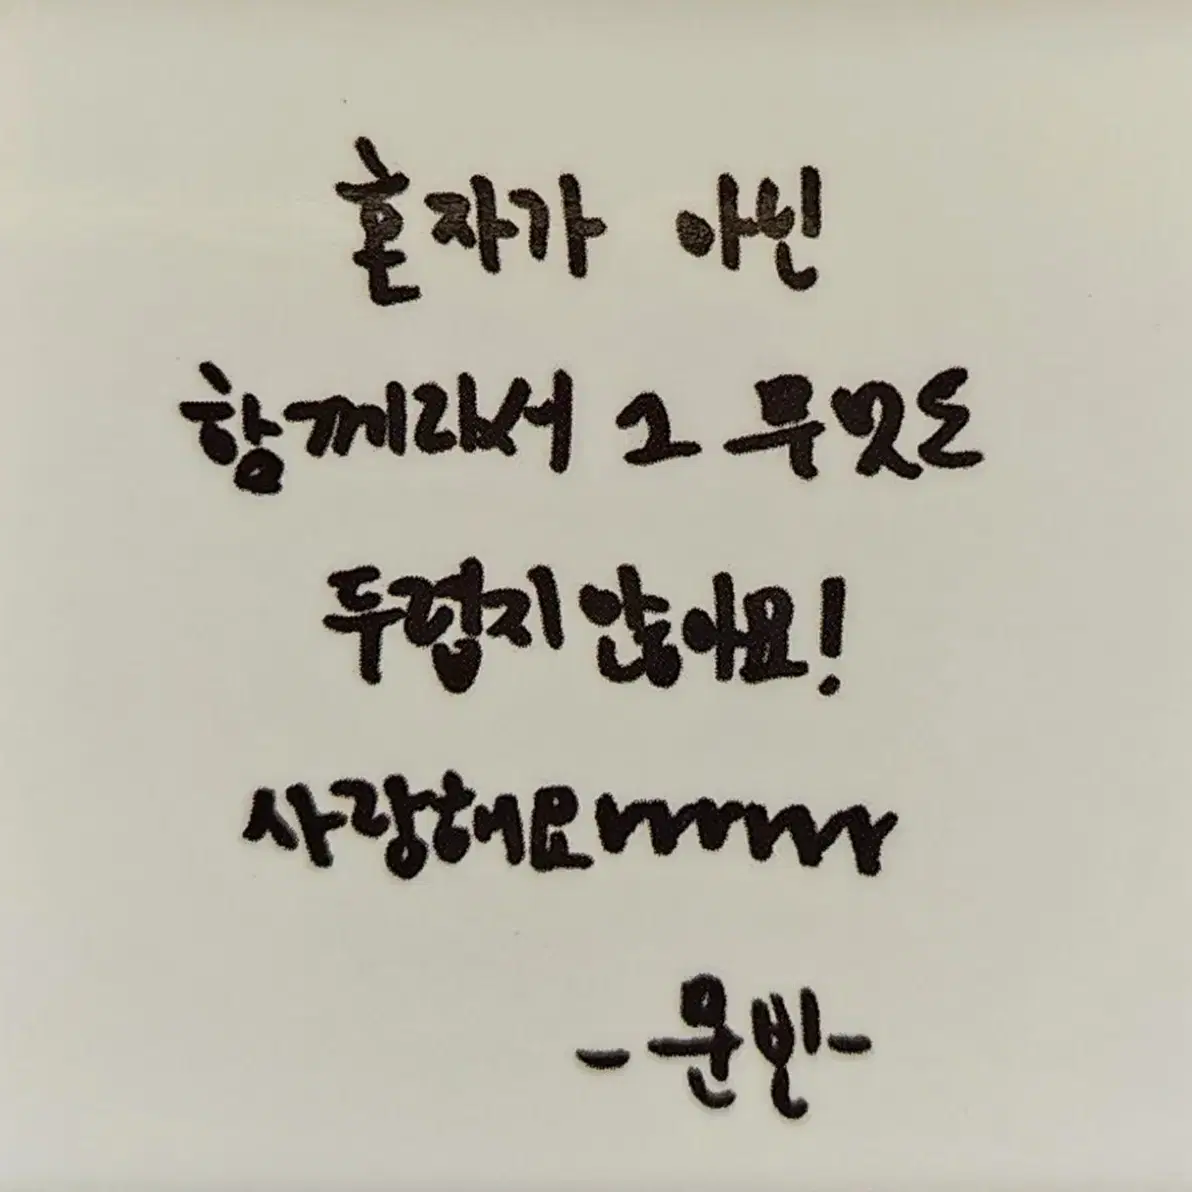 혼자가 아닌
함께라서 그 무엇도
두렵지 않아요!
사랑해요~~~~~
- 문빈 -